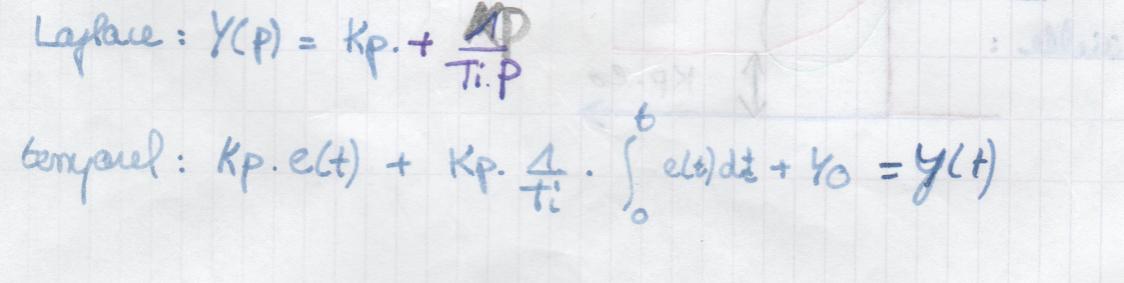 Laplace : Y(p) = Kp. + 1/Ti.p
temporel : Kp. e(t) + Kp. 1/Ti . ∫₀ᵗ e(t)dt + Y0 = y(t)